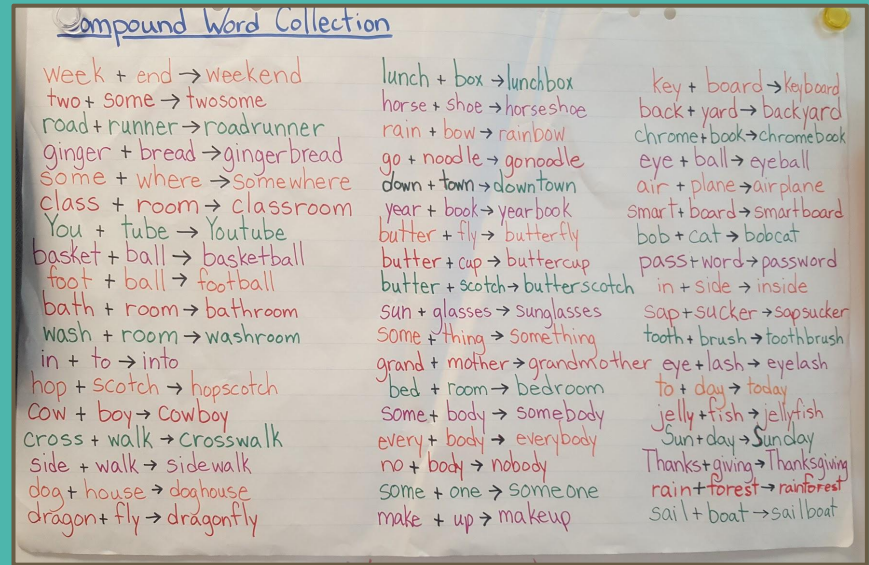 Compound Word Collection
week + end → weekend
two + some → twosome
road + runner → roadrunner
ginger + bread → gingerbread
some + where → somewhere
class + room → classroom
You + tube → Youtube
basket + ball → basketball
foot + ball → football
bath + room → bathroom
wash + room → washroom
in + to → into
hop + scotch → hopscotch
cow + boy → cowboy
cross + walk → crosswalk
side + walk → sidewalk
dog + house → doghouse
dragon + fly → dragonfly
lunch + box → lunchbox
horse + shoe → horseshoe
rain + bow → rainbow
go + noodle → gonoodle
down + town → downtown
year + book → yearbook
butter + fly → butterfly
butter + cup → buttercup
butter + scotch → butterscotch
sun + glasses → sunglasses
some + thing → something
grand + mother → grandmother
bed + room → bedroom
some + body → somebody
every + body → everybody
no + body → nobody
some + one → someone
make + up → makeup
key + board → keyboard
back + yard → backyard
chrome + book → chromebook
eye + ball → eyeball
air + plane → airplane
smart + board → smartboard
bob + cat → bobcat
pass + word → password
in + side → inside
sap + sucker → sapsucker
tooth + brush → toothbrush
eye + lash → eyelash
to + day → today
jelly + fish → jellyfish
Sun + day → Sunday
Thanks + giving → Thanksgiving
rain + forest → rainforest
sail + boat → sailboat